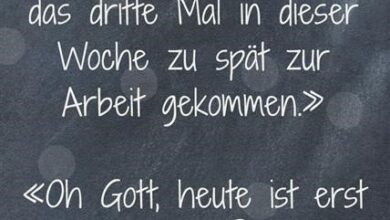 das dritte Mal in dieser
Woche zu spät zur
Arbeit gekommen.»
«Oh Gott, heute ist erst